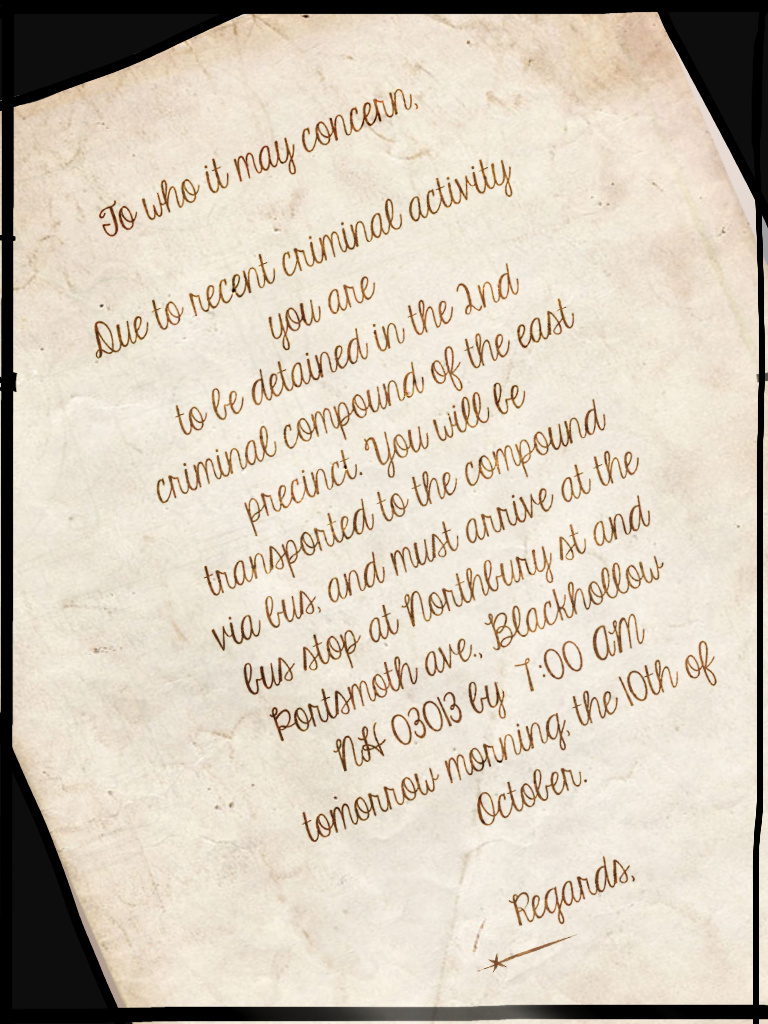 To who it may concern,
Due to recent criminal activity
you are
to be detained in the 2nd
criminal compound of the east
precinct. You will be
transported to the compound
via bus, and must arrive at the
bus stop at Northbury st and
Portsmoth ave., Blackhollow
NH 03013 by 7:00 AM
tomorrow morning, the 10th of
October.
Regards,